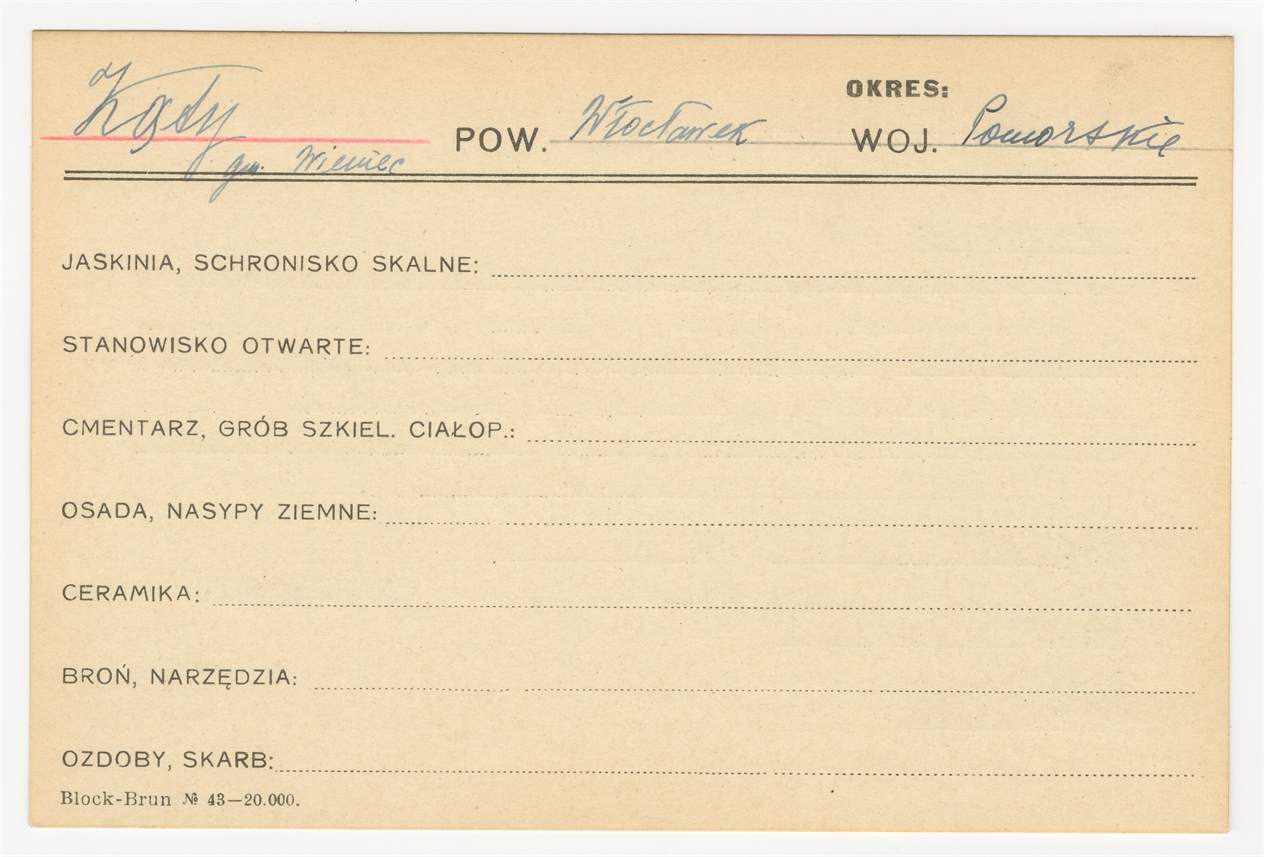 OKRES:
Kąty POW. Włocławek WOJ. Pomorskie
gm. Wieniec
JASKINIA, SCHRONISKO SKALNE:
STANOWISKO OTWARTE:
CMENTARZ, GRÓB SZKIEL. CIAŁOP.:
OSADA, NASYPY ZIEMNE:
CERAMIKA:
BROŃ, NARZĘDZIA:
OZDOBY, SKARB:
Block-Brun № 43—20.000.